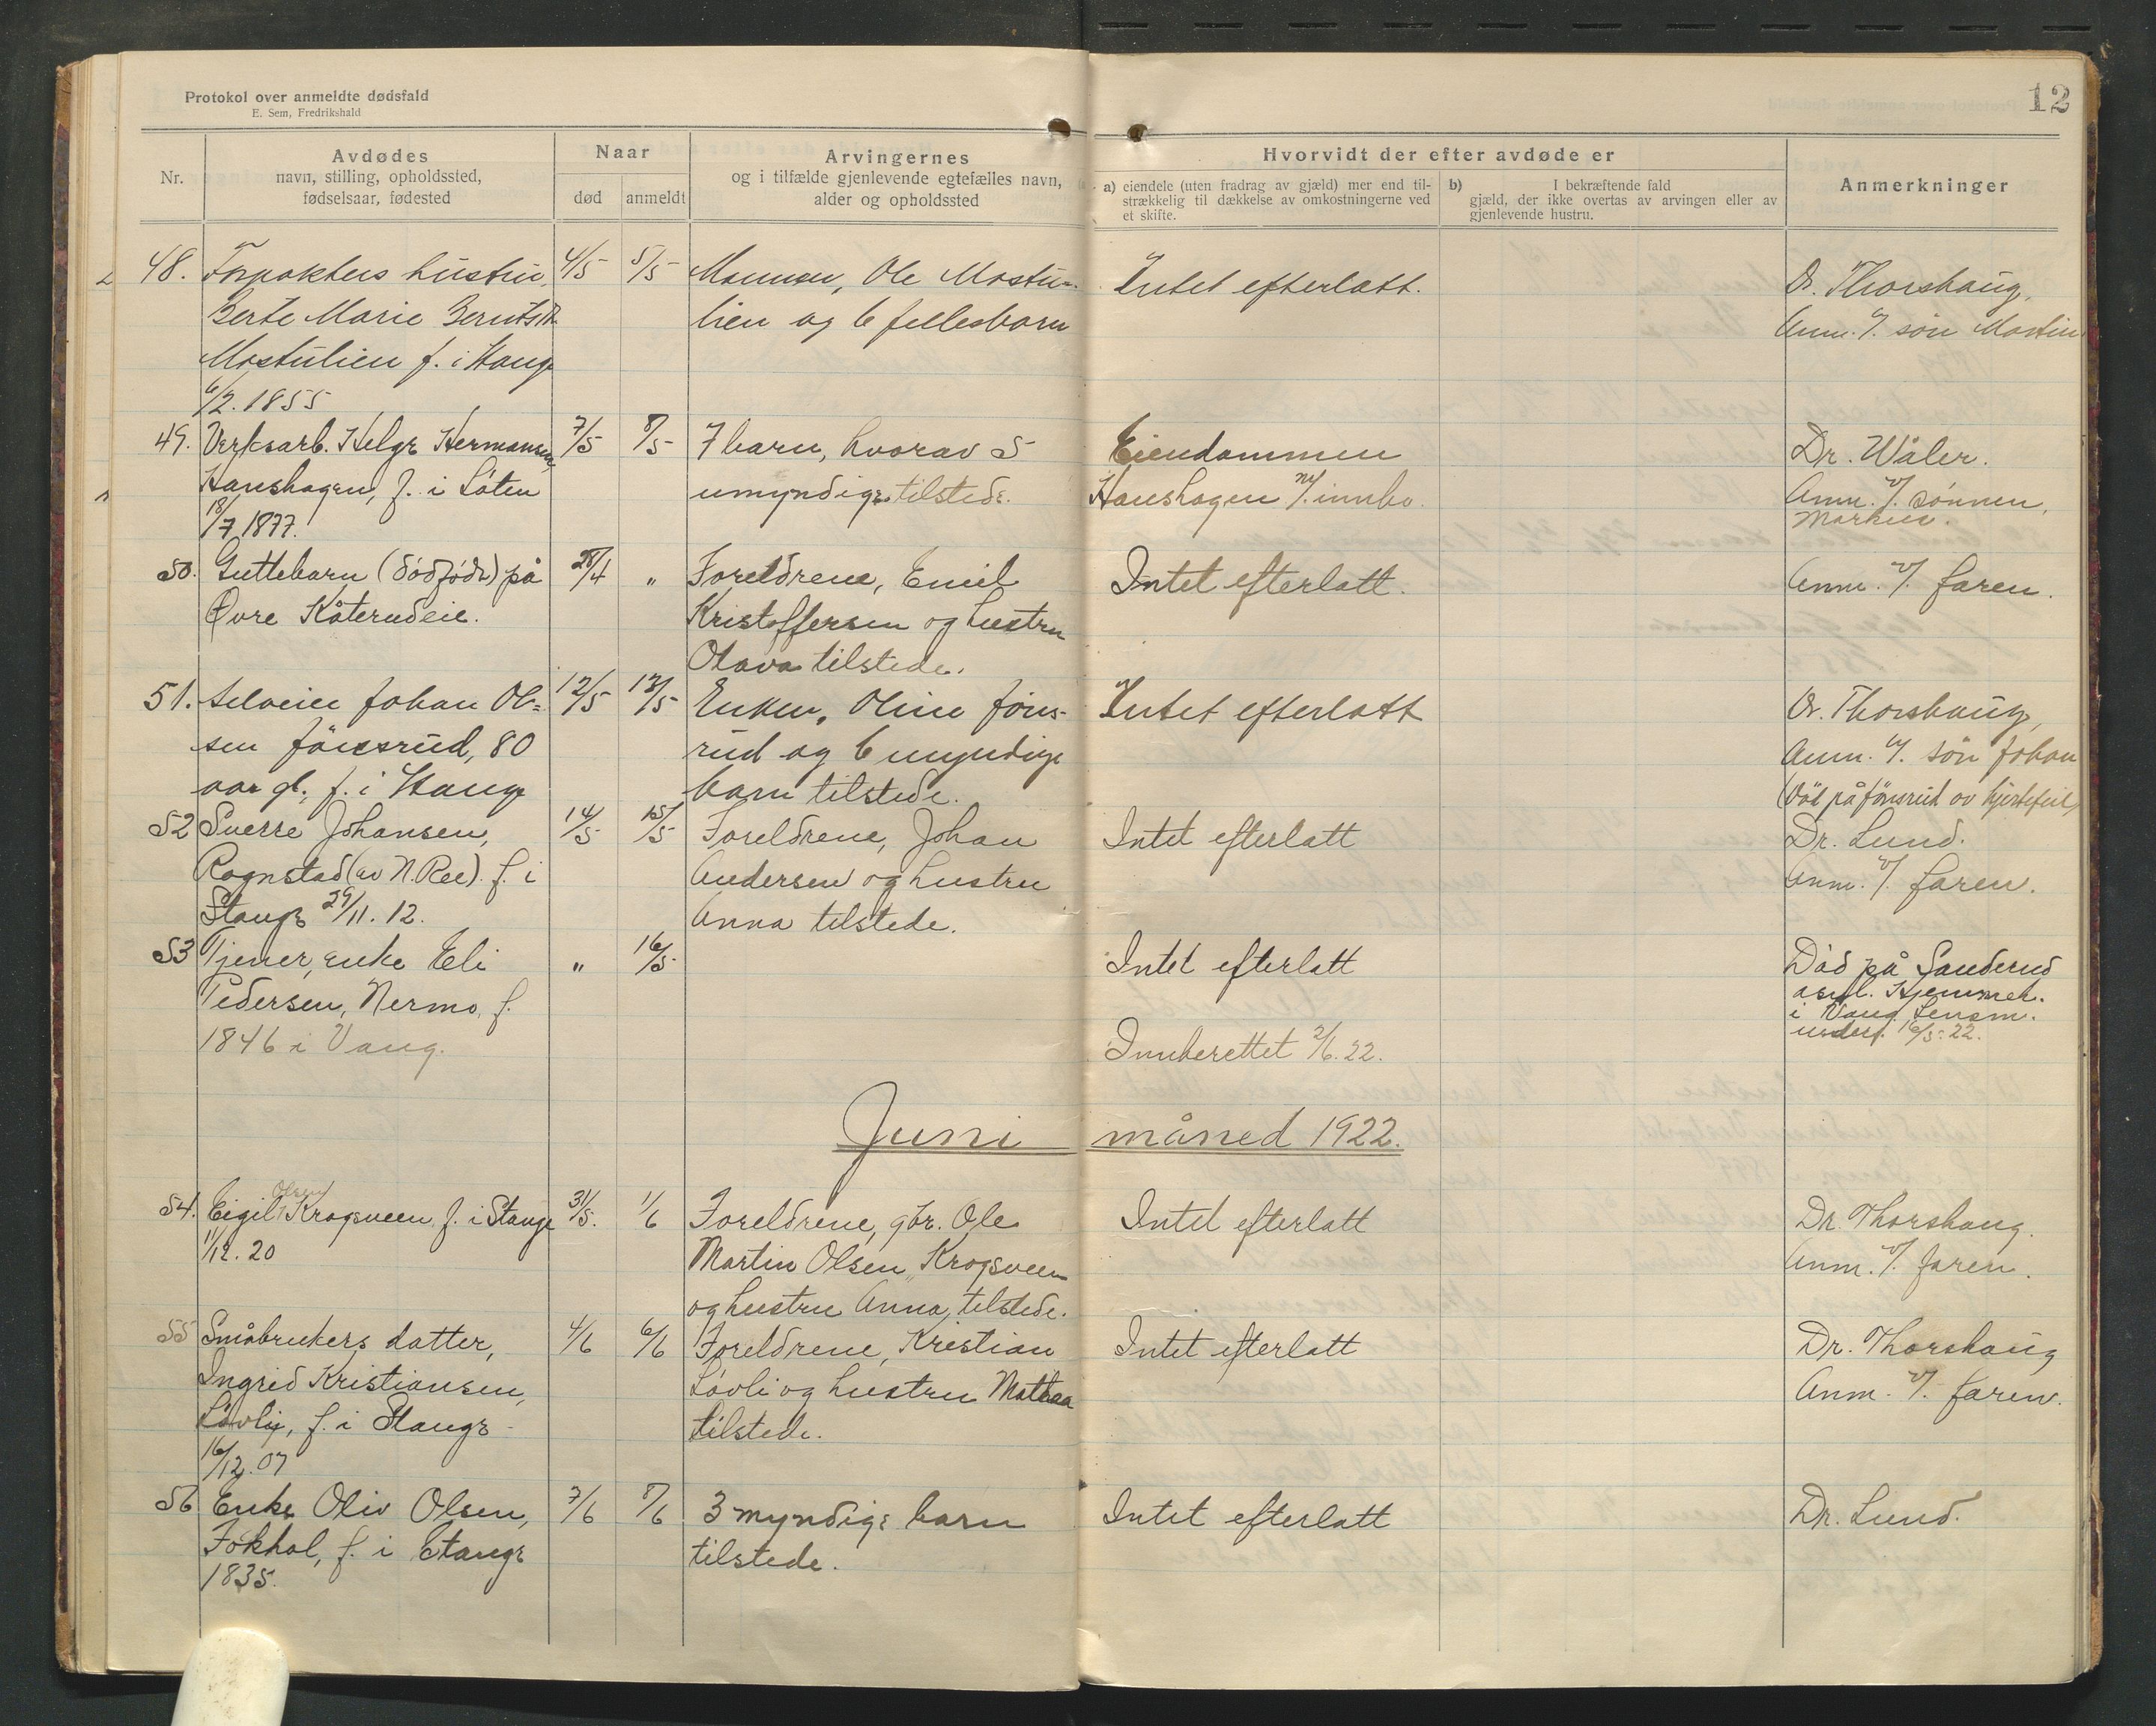 Protokol over anmeldte dødsfald
E. Sem, Fredrikshald
12
Nr.
Avdødes
navn, stilling, opholdssted,
fødselsaar, fødested
Naar
død
anmeldt
Arvingernes
og i tilfælde gjenlevende egtefælles navn,
alder og opholdssted
Hvorvidt der efter avdøde er
a) eiendele (uten fradrag av gjæld) mer end til-
strækkelig til dækkelse av omkostningerne ved
et skifte.
b) I bekræftende fald
gjæld, der ikke overtas av arvingen eller av
gjenlevende hustru.
Anmerkninger
48. Forpakters hustru, 4/5 5/5 Mannen, Ole Mostu- Intet efterlatt. Dr. Thorshaug,
Berte Marie Berntsdt. lien og 6 fellesbarn Anm. v/. søn Martin
Mostulien f. i Stange
6/2. 1855
49. Verksarb. Helge Hermansen 7/5 8/5 7 barn, hvorav 5 Eiendommen Dr. Wåler.
Hanshagen, f. i Løten umyndige tilstede. Hanshagen m/. innbo. Anm. v/. sønnen,
18/7 1877. Markus.
50. Guttebarn (dødfødt) på 28/4 " Foreldrene, Emil Intet efterlatt. Anm. v/. faren.
Øvre Kåterudeie. Kristoffersen og hustru
Olava tilstede.
51. Selveier Johan Ol= 12/5 13/5 Enken, Oline Jøns- Intet efterlatt Dr. Thorshaug,
sen Jønsrud, 80 rud og 6 myndige Anm. v/. søn Johan
aar gl., f. i Stange barn tilstede. (Død på Jønsrud av hjertefeil)
52 Sverre Johansen, 14/5 15/5 Foreldrene, Johan Intet efterlatt Dr. Lund.
Rognstad (av N. Ree). f. i Andersen og hustru Anm. v/. faren.
Stange 29/11. 12. Anna tilstede.
53 Tjener, enke Eli " 16/5 Intet efterlatt Død på Sanderud
Pedersen, Nermo, f. asyl. Hjemmeh.
i Vang Lensm.
1846 i Vang. Innberettet 2/6. 22. underr. 16/5. 22.
Juni måned 1922.
54. Eigil Olsen Krogsveen, f. i Stange 31/5. 1/6 Foreldrene, gbr. Ole Intet efterlatt Dr. Thorshaug.
11/12. 20 Martin Olsen Krogsveen Anm. v/. faren.
og hustru Anna, tilstede.
55 Småbrukers datter, 4/6 6/6 Foreldrene, Kristian Intet efterlatt Dr. Thorshaug
Ingrid Kristiansen, Løvli og hustru Mathea Anm. v/. faren.
Løvli, f. i Stange tilstede.
16/12. 07
56 Enke Oliv Olsen, 7/6 8/6 3 myndige barn Intet efterlatt Dr. Lund.
Fokhol, f. i Stange tilstede.
1835.